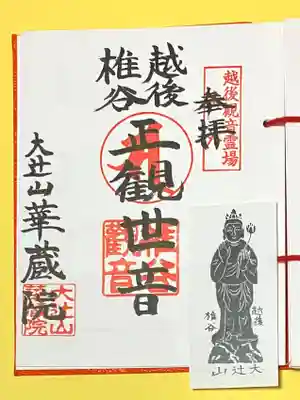 越後観音霊場
奉拝
越後
椎谷
正觀世音
椎谷
觀音
大辻山華蔵院
大辻山
華蔵院
越後
椎谷
大辻山